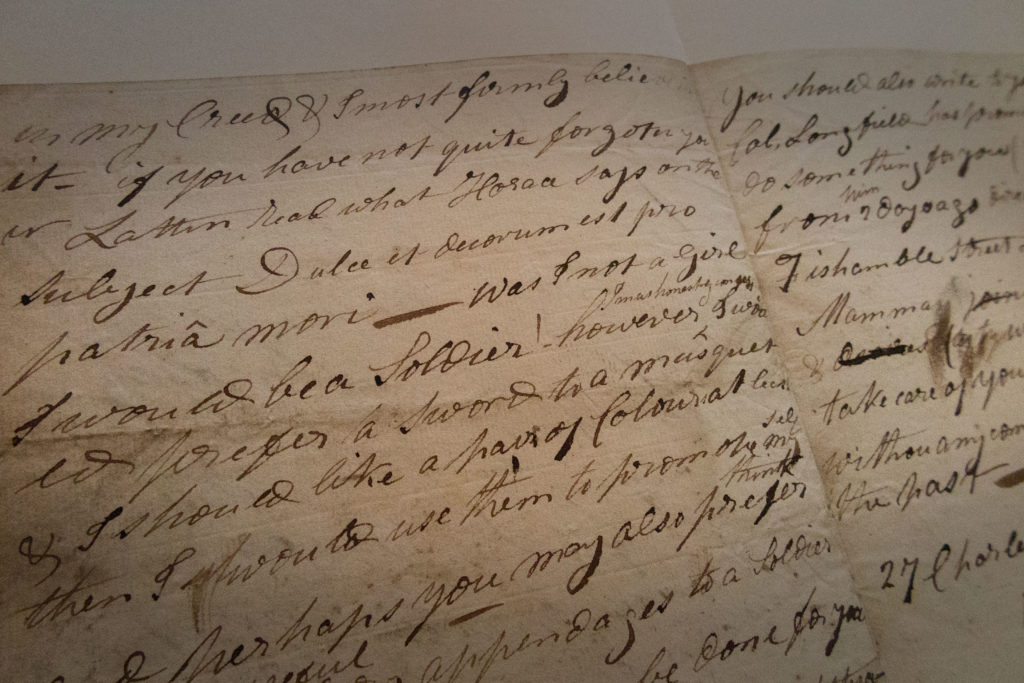 in my Creed & I most firmly believ
it - if you have not quite forgotten you
r Lattin read what Horace says on the
subject Dulce et decorum est pro
patriâ mori — was I not a girl
I would be a Soldier! however I wou
ld prefer a sword to a musquet
& I should like a pair of Colours at least
then I would use them to promote my self
& perhaps you may also prefer
think
appendages to a Soldier
be done for you
You should also write to
Col. Longfield has prom
do something for you
him
from 2 days ago
Fishamble Street
Mamma join
&
take care of you
without any com
the past —
27 Charle